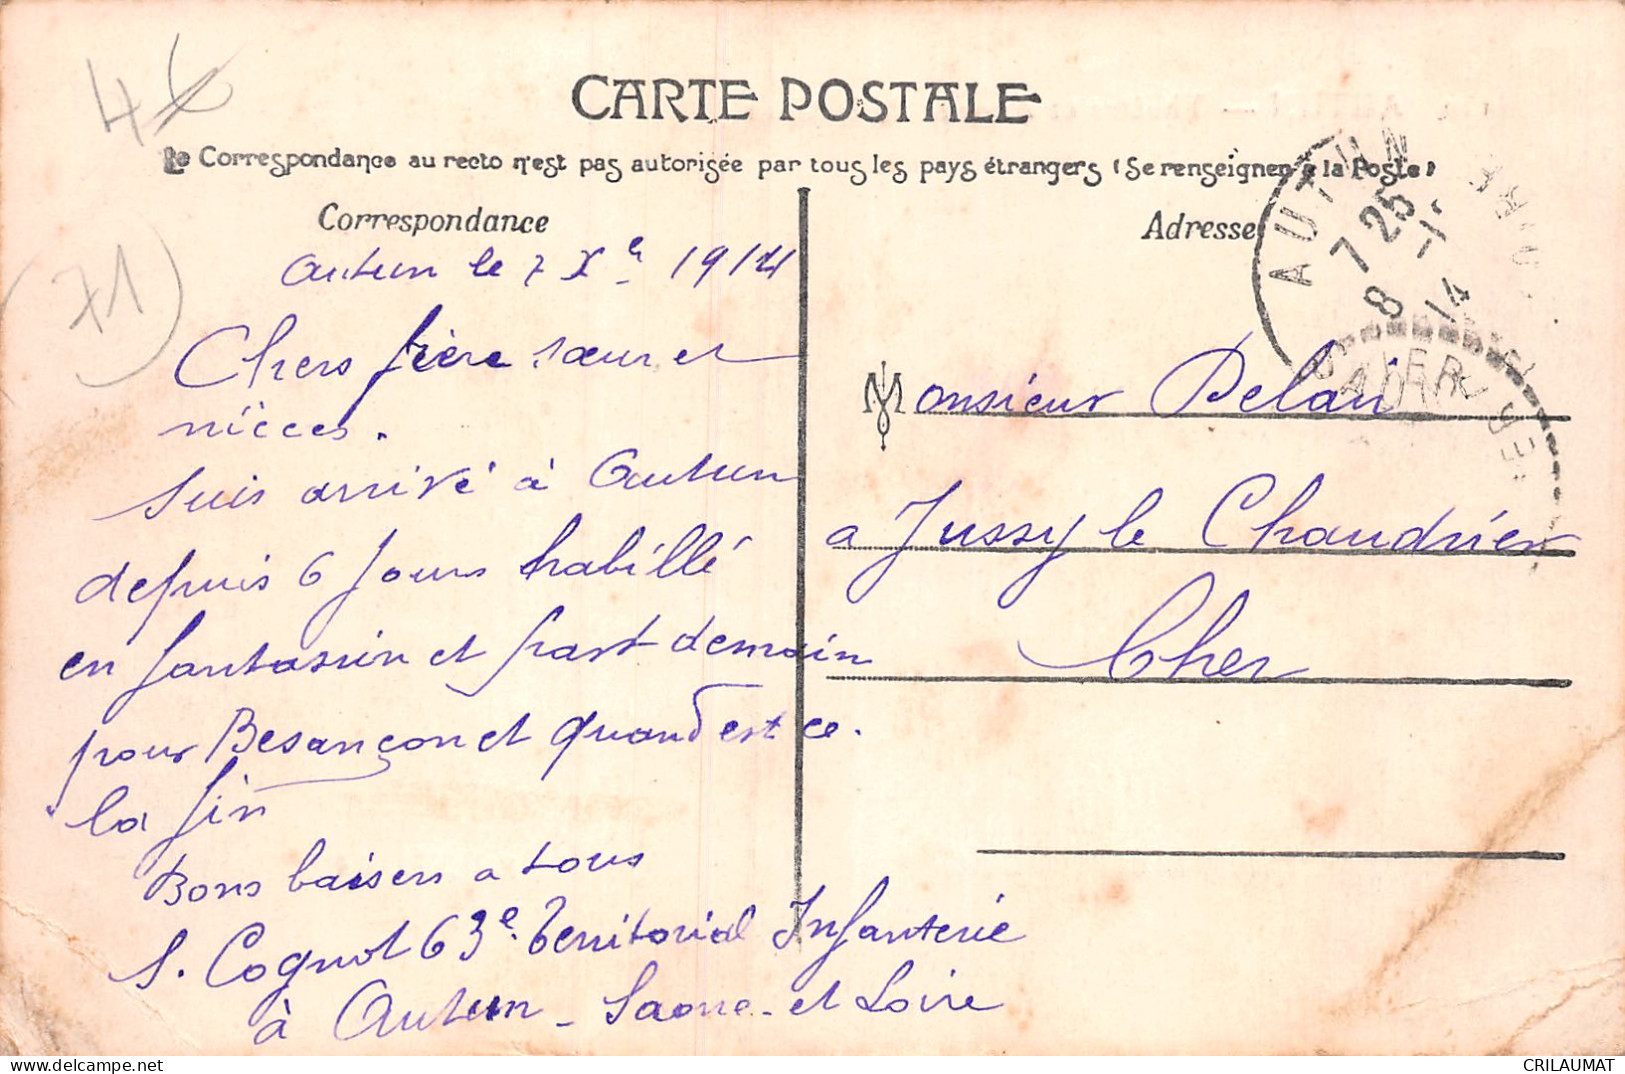 46
CARTE POSTALE
La Correspondance au recto n'est pas autorisée par tous les pays étrangers (Se renseigner à la Poste)
Correspondance
(71)
Autun le 7 Xe 1914
Chers frère sœur et
nièces.
Suis arrivé à Autun
depuis 6 jours habillé
en fantassin et part demain
pour Besançon et quand est ce.
la fin
Bons baisers a tous
S. Cognot 63e Territorial Infanterie
à Autun - Saone - et Loire
Adresse
AUTUN
7 25
8 - 14
Monsieur Delau
a Jussy le Chaudrier
Cher
delcampe.net
CRILAUMAT